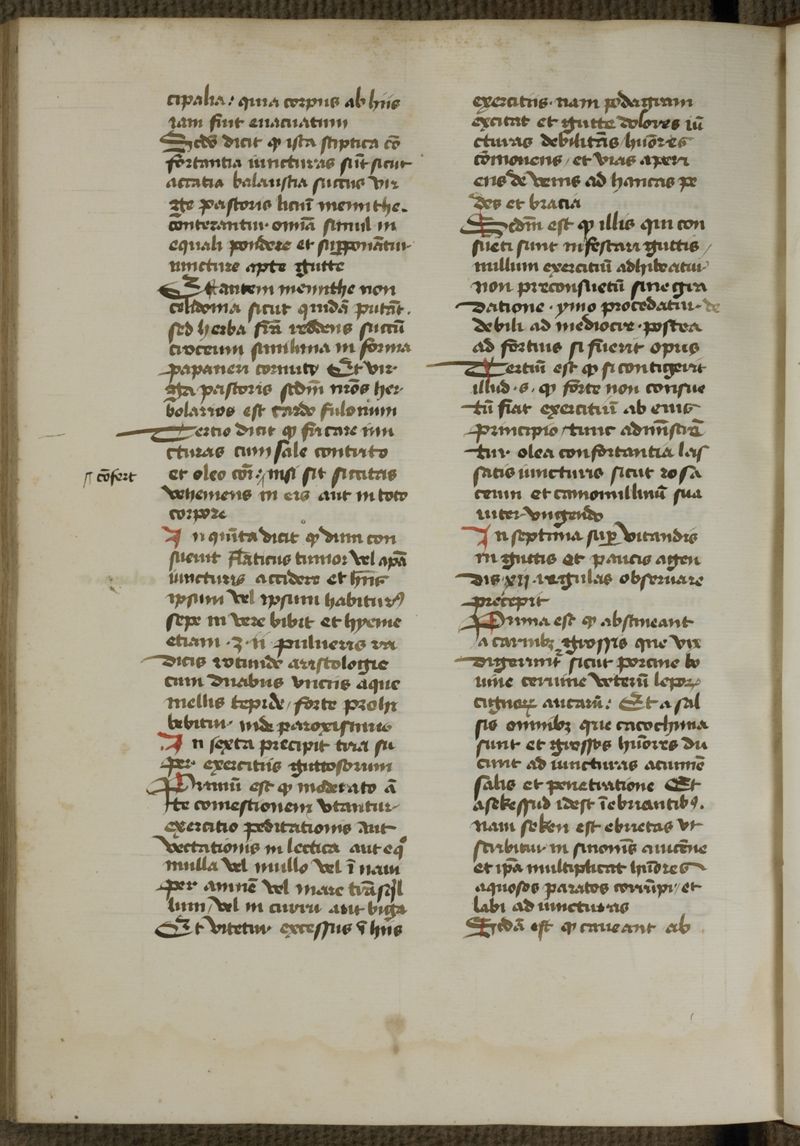 cipalia: quia corpus ab hiis
iam sint euacuatum
Scđo dicit ꝙ ista stiptica cō
fortantia iuncturas sūt sicut
accatia balaustia succus vir
ge pastoris licuī memithe.
conterantur omīa simul in
equali pondere et supponātur
iuncture apte gutte
Est autem memithe non
celidonia sicut quidā putāt.
sed herba sua reddens succū
croceum simillima in forma
papaueri cornuto Et vir
ga pastoris scđm nr̄os her
bolarios est cardo fulonum
Tertio dicit ꝙ fricare iun
cturas cum sale contrito
et oleo cōr. nisi sit siccitas
vehemens in eis aut in toto
corpore
cōfert
In quīta dicit ꝙ dum con
sueuit flāticus tumor vel apā
iuncturis accidere et hn̄s
ipsum vel ipsum habiturꝰ
sepe in vere bibit et hyeme
etiam ·ʒ· ii pulueris ra
dicis rotunde aristologie
cum duabus vnciis aque
mellis tepide, forte prohi
bebitur inde paroxismus
In sexta precipit tria su
per exerciciis guttosorum
Primū est ꝙ moderato ā
te comestionem vtantur
exercitio peditationis aut
vectationis in lectica aut eq̄
mulla vel mullo vel ī naui
per amnē vel mare trāq̄l
lum, vel in curru aut biga
Et vitetur excessus ī hiis
exercitiis. nam podagram
excitat et gutte dolores iū
cturas debilitās hūores
cōmouens, et vias aperi
ens de venis ad hancas pe
des et bracia
Scđm est ꝙ illis qui con
sueti sunt infestari guttis,
nullum exercitiū adhibeatur
non preconsuetū sine gra
datione. ymo procedatur de
debili ad mediocre. postea
ad fortius si fuerit opus
Tertiū est ꝙ si contigerit
illud .s. ꝙ forte non consue
tū fiat exercitiū ab eius
principio, tunc admīstrā
tur olea confortantia las
satis iuncturis sicut rosa
ceum et camomillinū sua
uiter vngendo
In septima sup̄ vitandis
in guttis et paucis agen
dis xii regulas obseruare
precepit
Prima est ꝙ abstineant
a carnibꝫ grossis que vix
digerunt̄ sicut porcine bo
uine ceruine veterū lepoꝝ
cignoꝝ aucarū: Et a sal
sis omnibꝫ que cacochima
sunt et grossos hūores du
cunt ad iuncturas acumē
salis et penetratione Et
asekessud idest īebriantibꝰ.
nam seken est ebrietas vt
scribitur in sinonīs auicēne
et ip̄a multiplicat hūores
aquosos paratos corrūpi, et
labi ad iuncturas
Scđa est ꝙ caueant ab